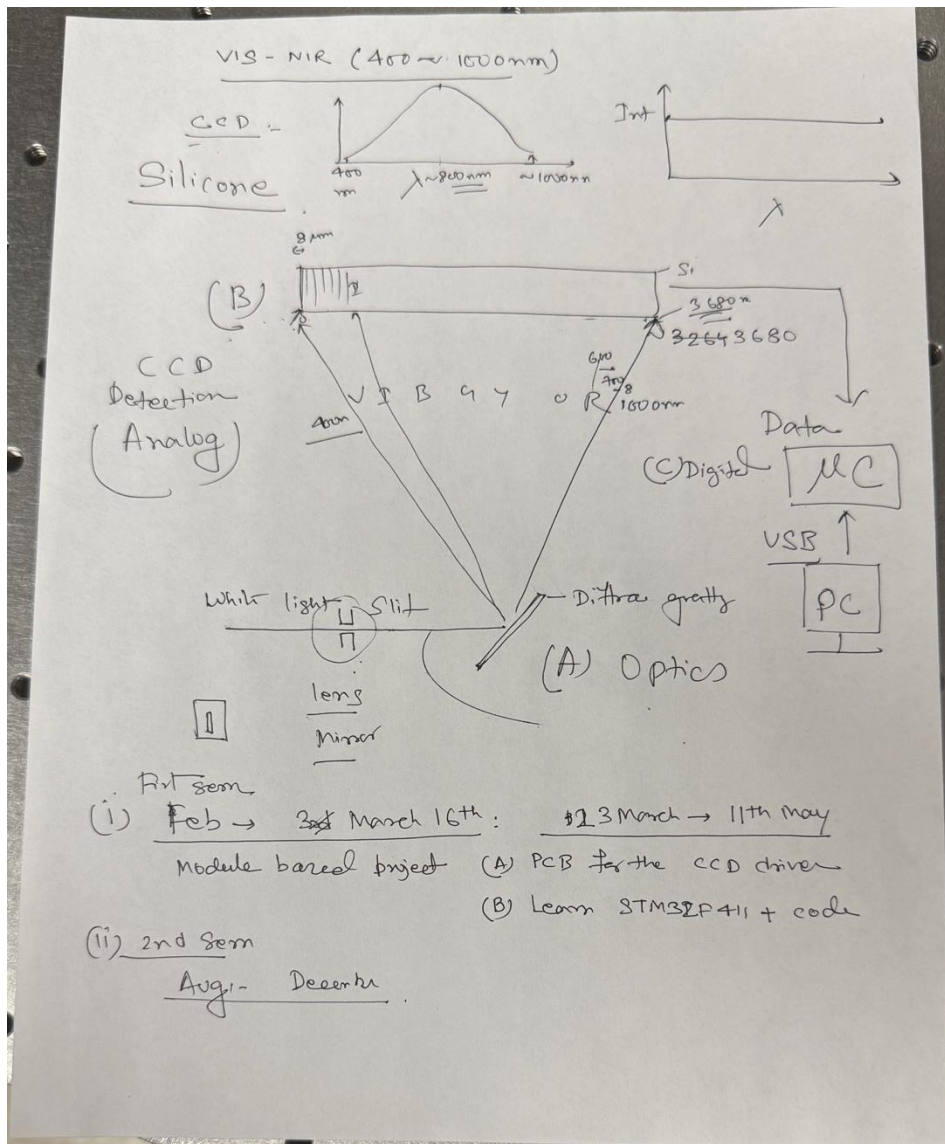 VIS - NIR (400 ~ 1000nm)
CCD :-
Silicone
400
nm
λ~800nm
~1000nm
Int
λ
8 μm
(B)
Si
3680
32643680
CCD
Detection
(Analog)
V I B G Y O R
400n
600
700
1000nm
Data
(C) Digital
μC
USB
PC
White light
Slit
Diffra gratty
(A) Optics
lens
Mirror
First Sem
(i) Feb → March 16th : 23 March → 11th May
Module based project (A) PCB for the CCD driver
(B) Learn STM32F411 + code
(ii) 2nd Sem
Aug:- Decembr